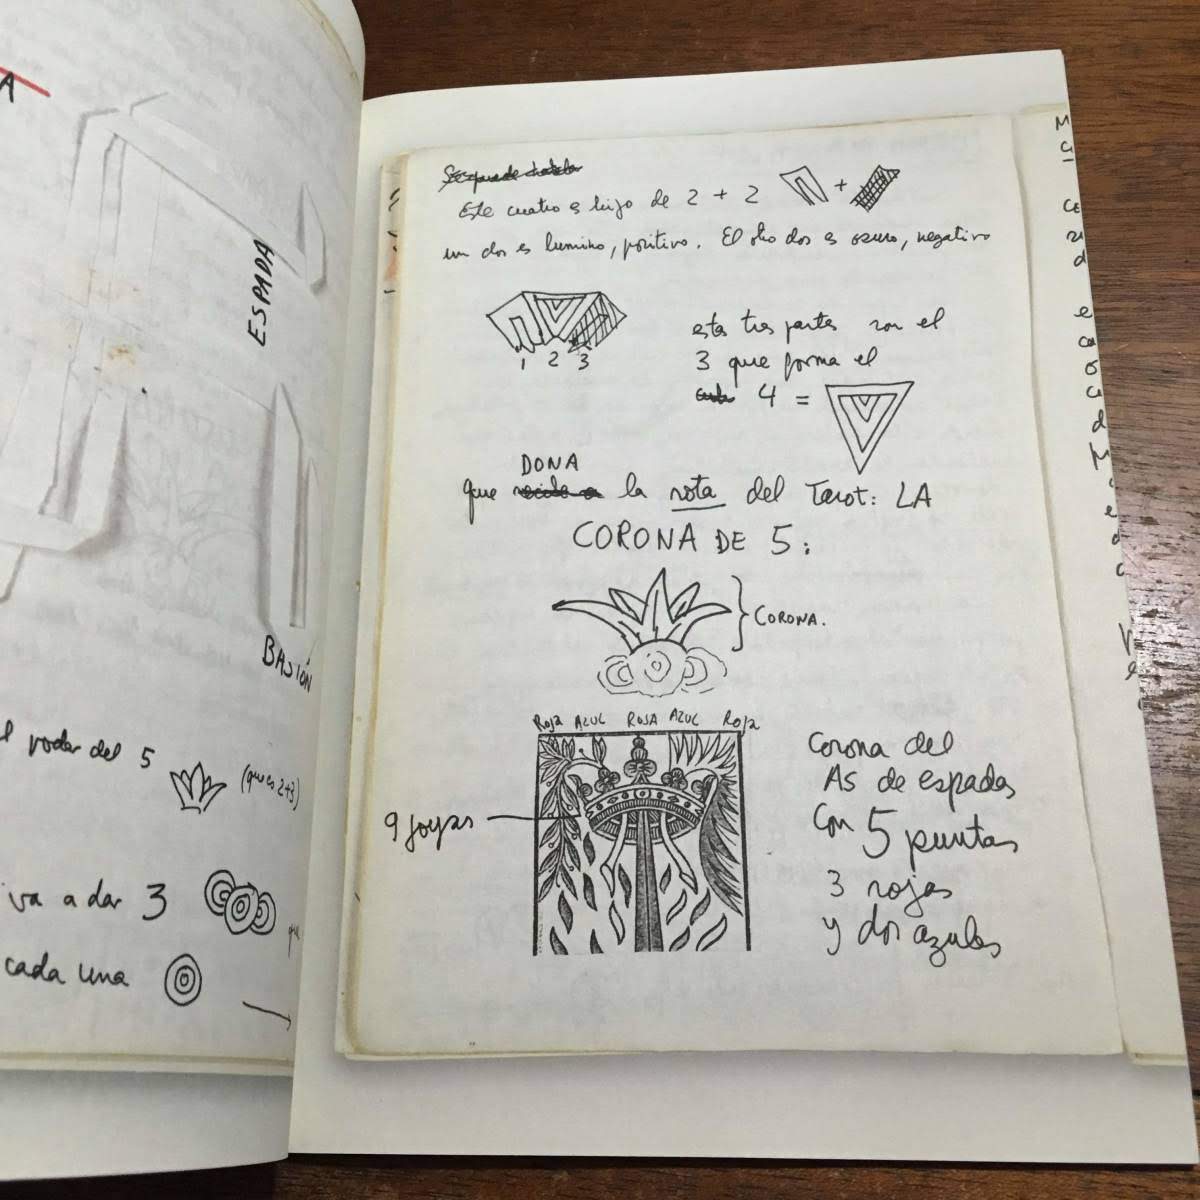 A
ESPADA
BASTÓN
el poder del 5
(que es 2+3)
va a dar 3
que
cada una
Este cuatro es hijo de 2 + 2 +
un dos es lumino, positivo. El otro dos es oscuro, negativo
1 2 3
estas tres partes son el
3 que forma el
4 =
DONA
que la nota del Tarot: LA
CORONA DE 5:
CORONA.
Roja AZUL ROJA AZUL Roja
9 joyas
Corona del
As de espadas
Con 5 puntas
3 rojas
y dos azules